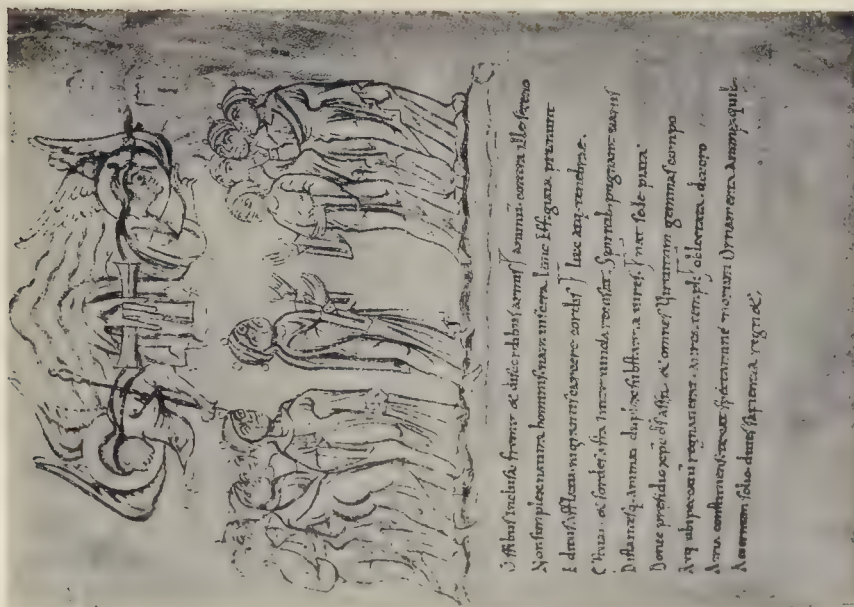 Ossibus inclusa fremit & discordibus armis animū contra ille sereno
Non simplex natura hominis. nam uiscera limo Effigiata premunt
Editus afflatu nigrantis carcere cordis lux atq; tenebrae.
Estuat. & sordes arta inter uincula recusat. Spiritib; pugnant uariis
Distantesq; animat duplex substantia uires. nat sede piata
Donec presidio xp̄c d̄s assit & omnes Virtutum gemmas compo
Atq; ubi peccatū regnauerat. aurea templi oblectata decoro
Atria constituens texat spectamine morum Ornamenta animę quib;
Aeternum solio diues sapientia regnet;